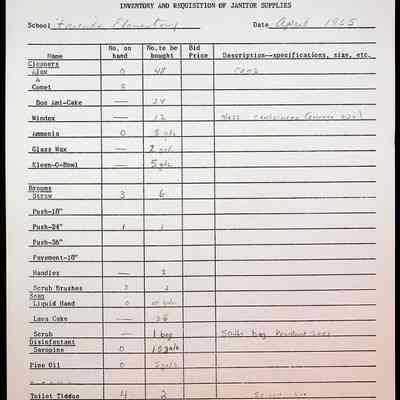 INVENTORY AND REQUISITION OF JANITOR SUPPLIES
School Elementary Date April 1965
Name No. on hand No. to be bought Bid Price Description--specifications, size, etc.
Cleaners
Ajax 0 48 cans
&
Comet 0
Bon Ami-Cake — 24
Windex — 12
Ammonia 0
Glass Wax — 2
Kleen-O-Bowl — 5
Brooms
Straw 3 6
Push-18"
Push-24" 1 1
Push-36"
Pavement-18"
Handles — 2
Scrub Brushes
Soap
Liquid Hand 0
Lava Cake — 26
Scrub — 1 bag bag
Disinfectant
Savopine 0 10 gals
Pine Oil 0
Toilet Tissue 4 2